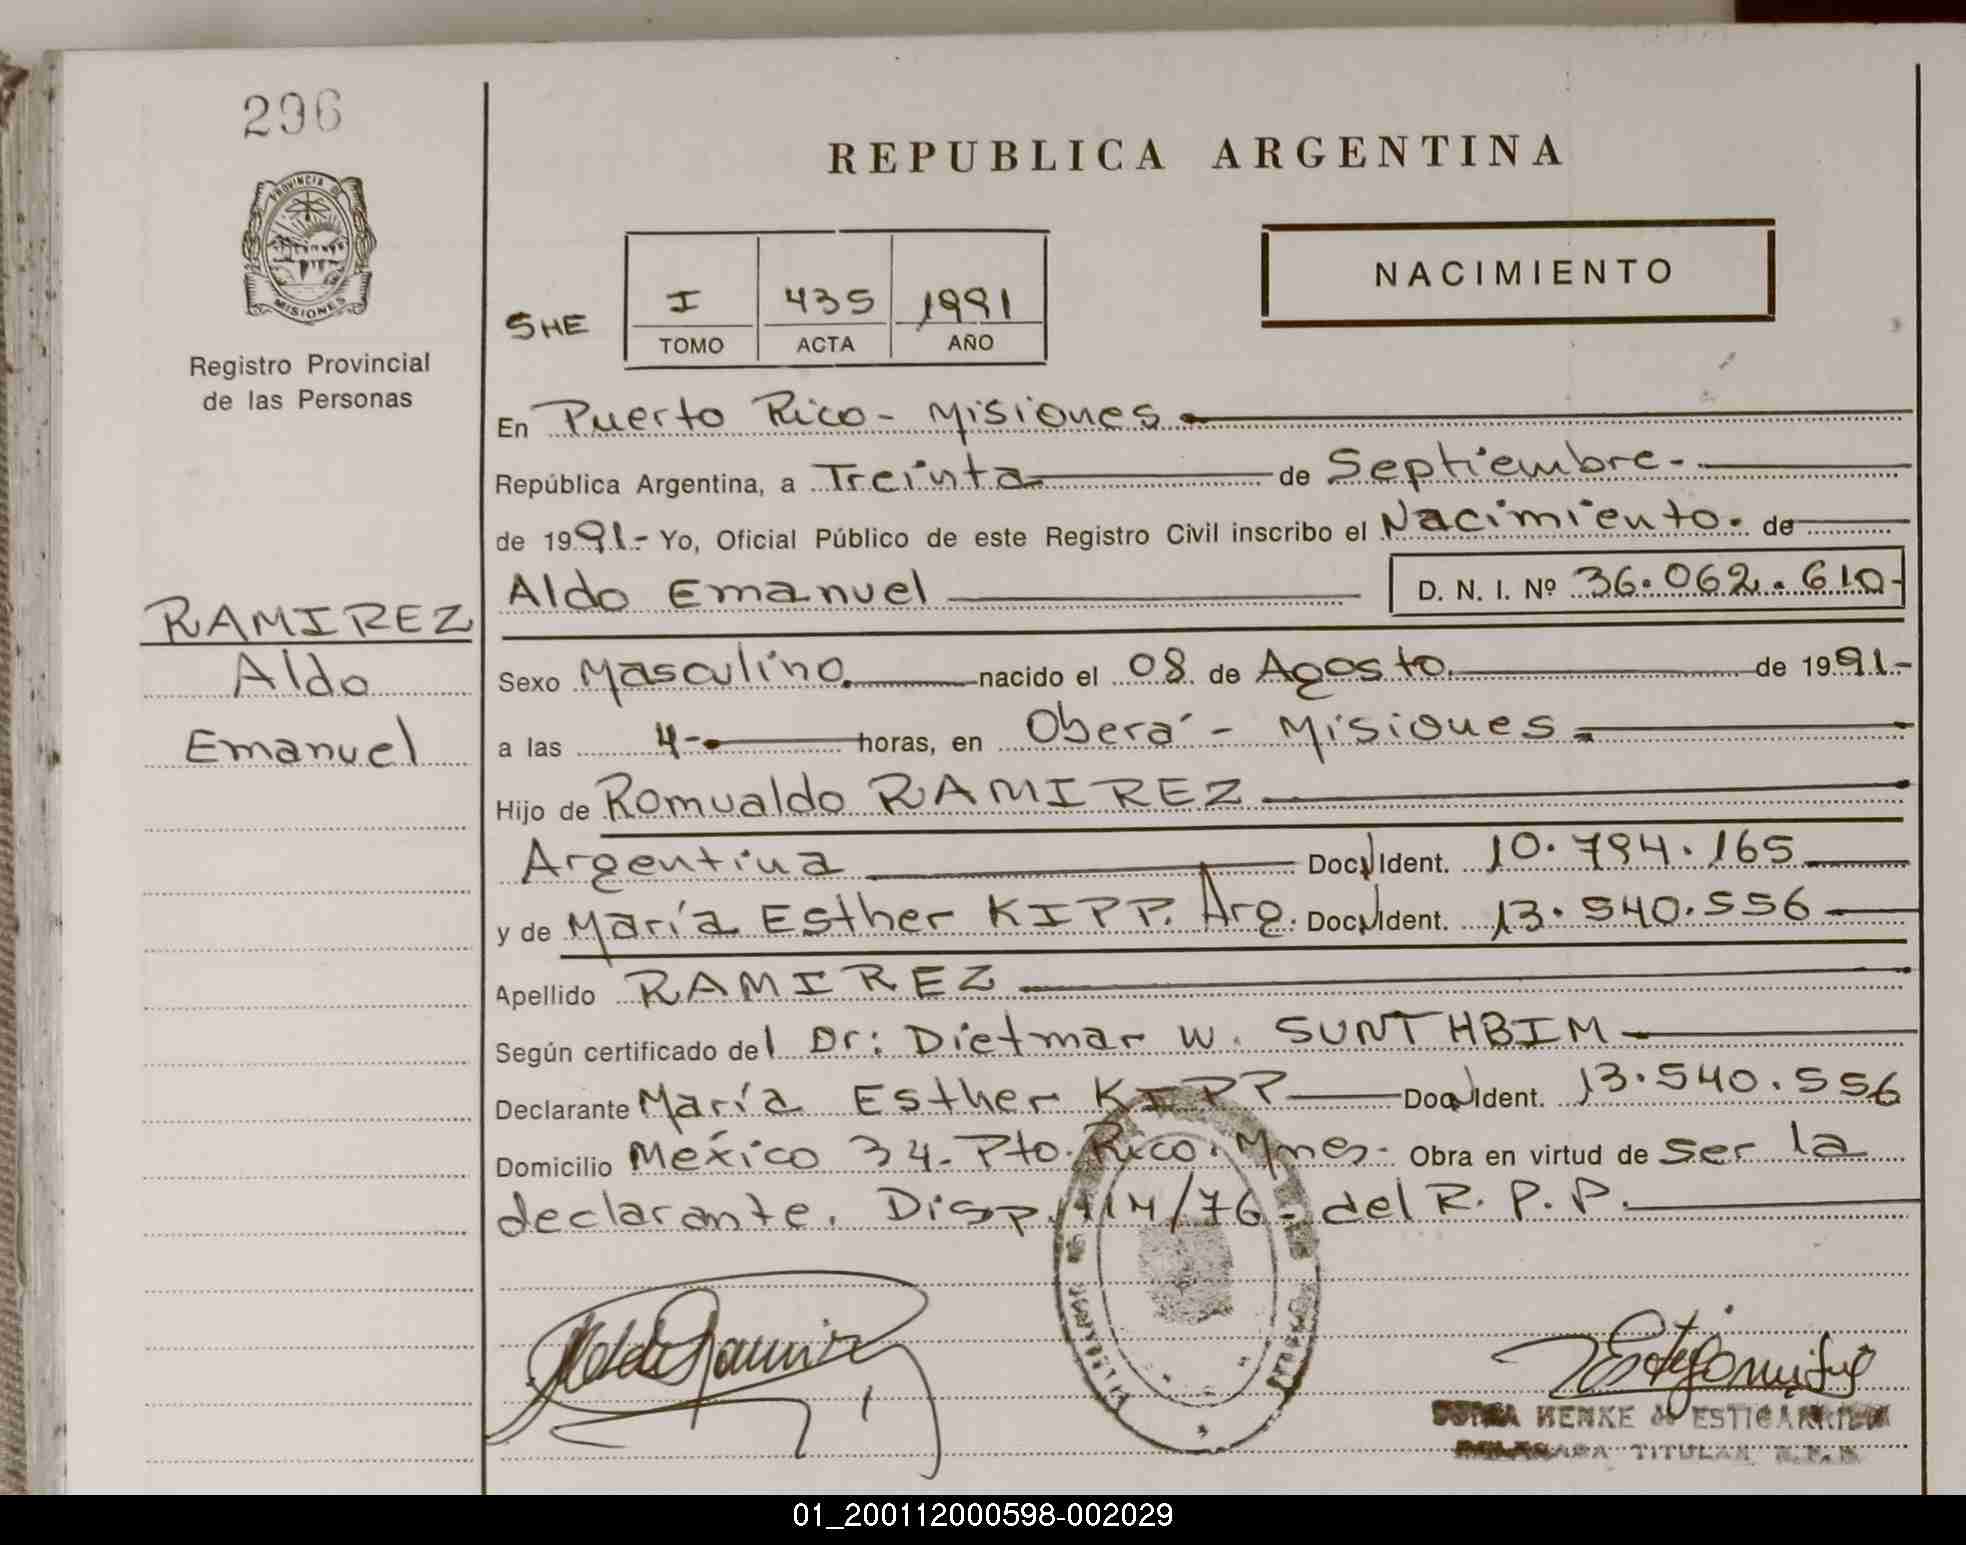 296
REPUBLICA ARGENTINA
PROVINCIA DE
MISIONES
Registro Provincial
de las Personas
SHE
I 435 1991
TOMO ACTA AÑO
NACIMIENTO
En Puerto Rico - Misiones
República Argentina, a Treinta de Septiembre.-
de 1991.- Yo, Oficial Público de este Registro Civil inscribo el Nacimiento. de
Aldo Emanuel D. N. I. Nº 36.062.610-
RAMIREZ
Aldo
Emanuel
Sexo Masculino. nacido el 08 de Agosto. de 1991.-
a las 4-. horas, en Oberá - Misiones.
Hijo de Romualdo RAMIREZ
Argentina Doc. Ident. 10.794.165
y de María Esther KIPP. Arg. Doc. Ident. 13.540.556
Apellido RAMIREZ
Según certificado del Dr: Dietmar W. SUNTHBIM
Declarante María Esther KIPP Doc. Ident. 13.540.556
Domicilio México 34- Pto. Rico. Mnes- Obra en virtud de ser la
declarante. Disp. 114/76. del R. P. P.
HENKE de ESTIGARRIBIA
TITULAR
01_200112000598-002029